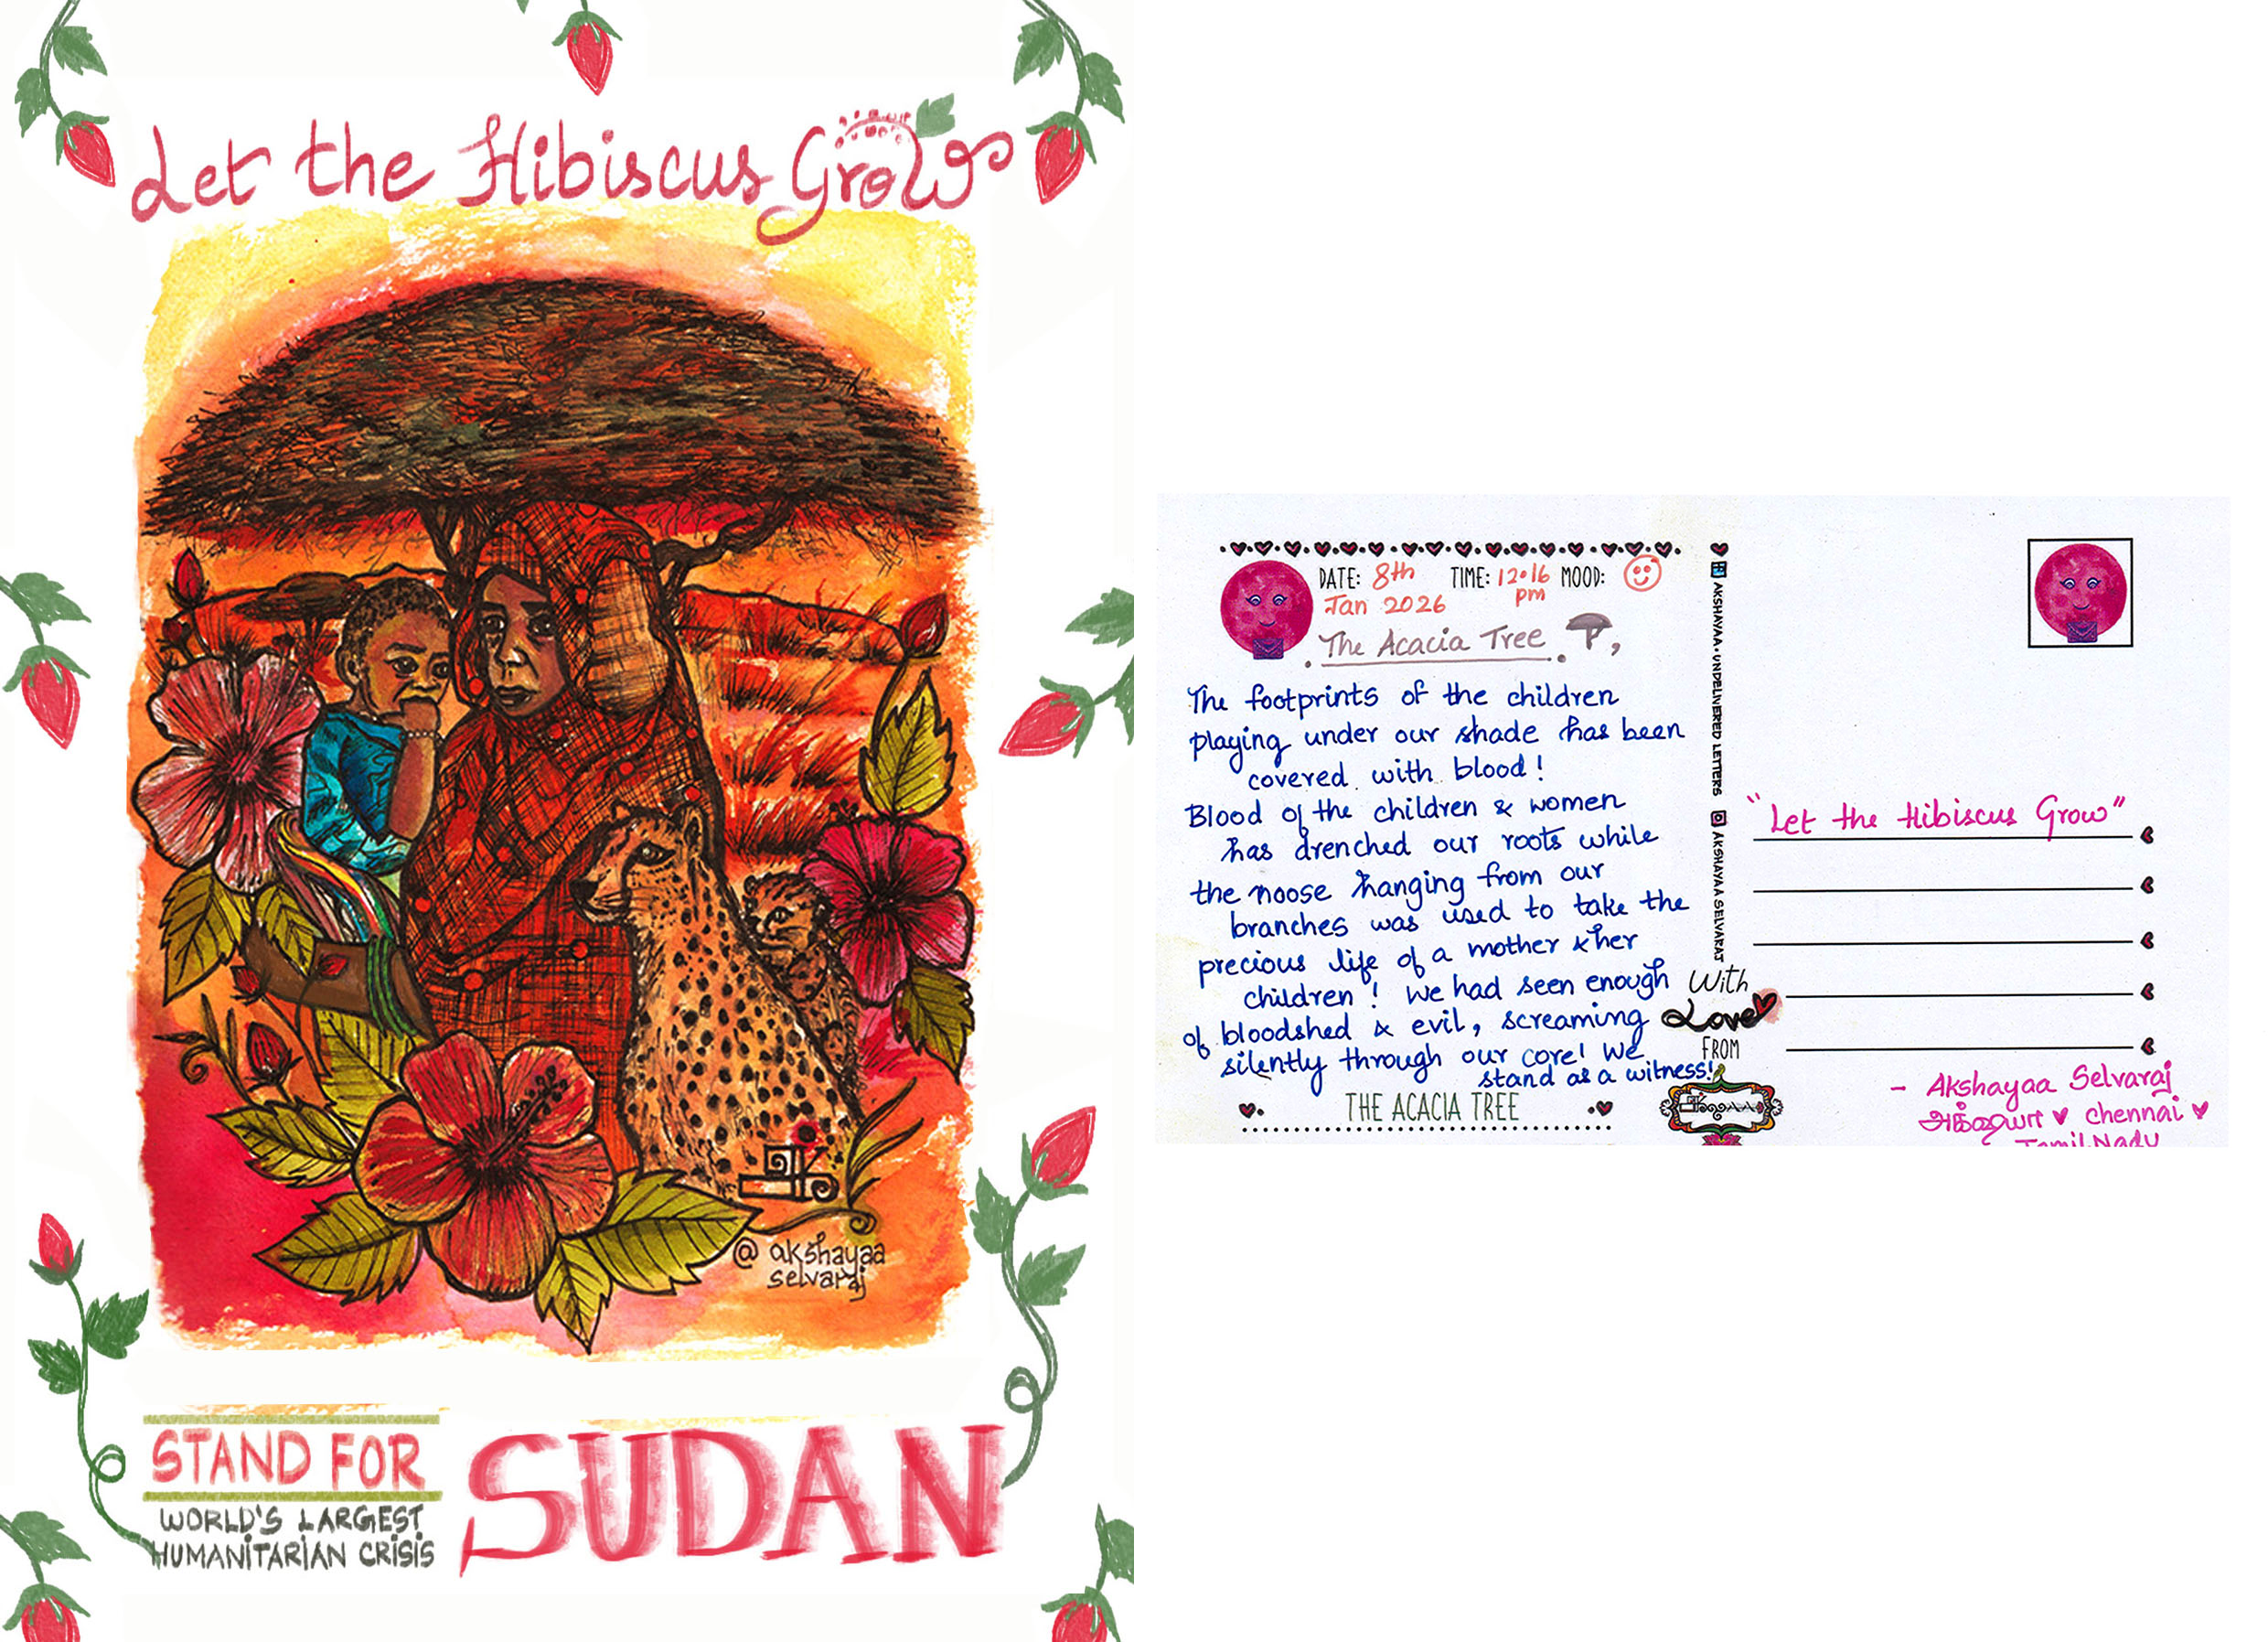 Let the Hibiscus Grow
@ akshayaa
selvaraj
STAND FOR
WORLD'S LARGEST
HUMANITARIAN CRISIS
SUDAN
DATE: 8th
Jan 2026
TIME: 12.16
pm
MOOD:
The Acacia Tree,
The footprints of the children
playing under our shade has been
covered with blood!
Blood of the children & women
has drenched our roots while
the noose hanging from our
branches was used to take the
precious life of a mother & her
children! We had seen enough
of bloodshed & evil, screaming
silently through our core! We
stand as a witness!
THE ACACIA TREE
AKSHAYAA • UNDELIVERED LETTERS
AKSHAYAA SELVARAJ
With
Love
FROM
"Let the Hibiscus Grow"
- Akshayaa Selvaraj
Chennai
Tamil Nadu